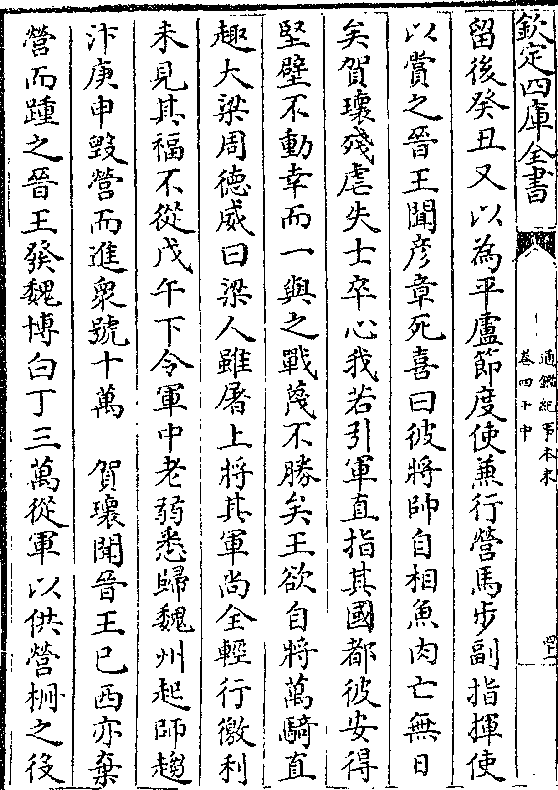 欽定四庫全書
通鑑紀事本末
卷四十中
留後癸丑又以為平盧節度使兼行營馬步副指揮使
以賞之晉王聞彥章死喜曰彼將帥自相魚肉亡無日
矣賀瓌殘虐失士卒心我若引軍直指其國都彼安得
堅壁不動幸而一與之戰蔑不勝矣王欲自將萬騎直
趣大梁周德威曰梁人雖屠上將其軍尚全輕行徼利
未見其福不從戊午下令軍中老弱悉歸魏州起師趨
汴庚申毀營而進衆號十萬　賀瓌聞晉王已西亦棄
營而踵之晉王發魏博白丁三萬從軍以供營柵之役